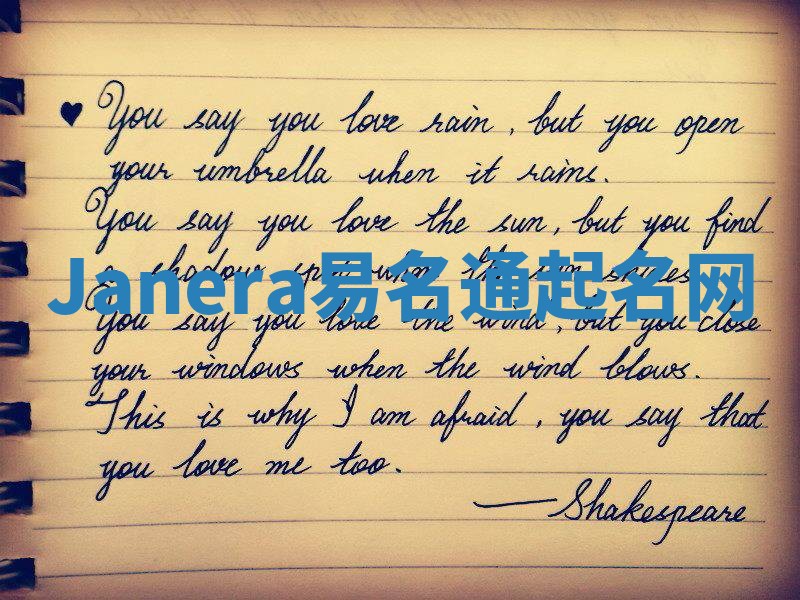 ♥ You say you love rain, but you open
your umbrella when it rains.
You say you love the sun, but you find
a shadow spot when the sun shines.
Janera易名通起名网
You say you love the wind, but you close
your windows when the wind blows.
This is why I am afraid, you say that
you love me too.
—Shakespeare